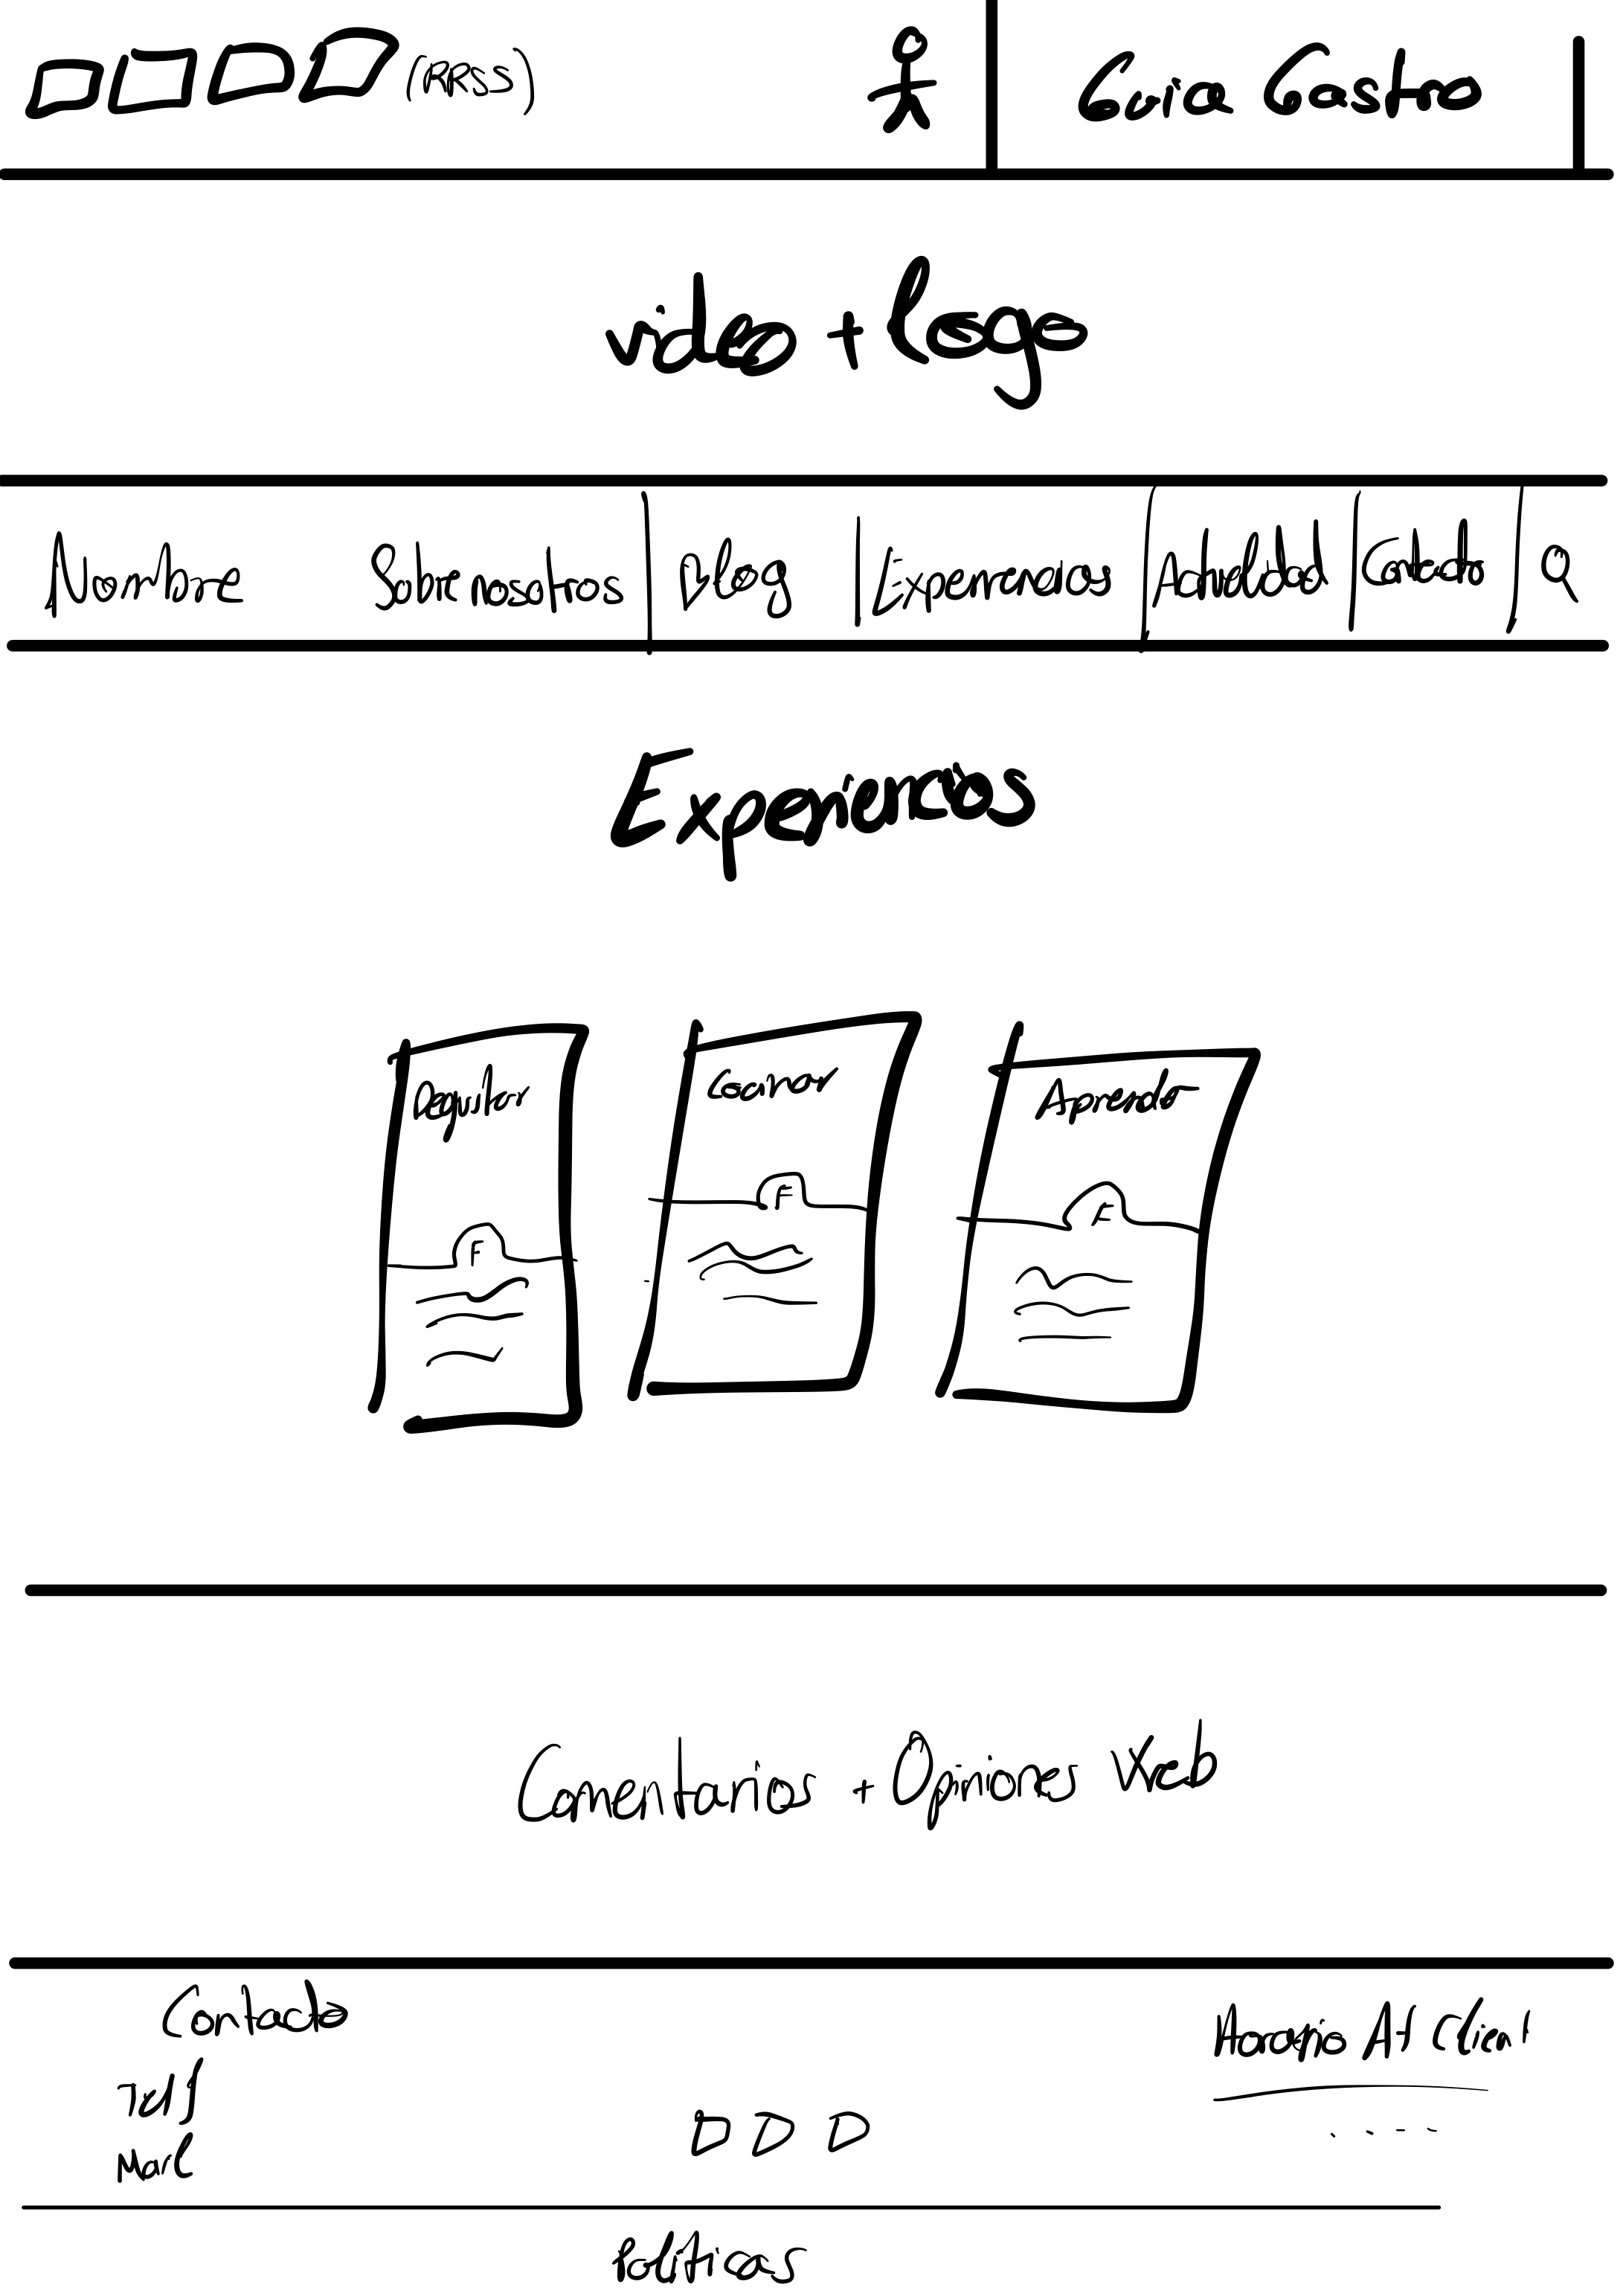 (RRSS) Guia Gastro
video + logo
Nombre Sobre nosotros Blog Experiencias Actualidad Contacto
Experiencias
Degustar Cocinar Aprende
F F F
Comentarios + Opiniones Web
Contacto Horario At Client
Telf
Mail
Políticas